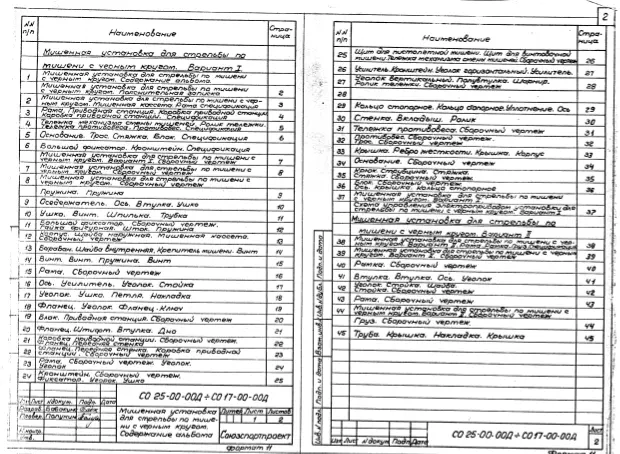 NN п/п Наименование Страница
Мишенная установка для стрельбы по
мишени с черным кругом. Вариант I.
1 Мишенная установка для стрельбы по мишени
с черным кругом. Содержание альбома
Мишенная установка для стрельбы по мишени
с черным кругом. Пояснительная записка 2
2 Мишенная установка для стрельбы по мишени с чер-
ным кругом. Мишенная кассета. Рама. Спецификация 3
3 Рама. Приводная станция. Коробка приводной станции
Коробка приводной станции. Спецификация 4
4 Тележка механизма смены мишеней. Ролик тележки.
Тележка противовеса. Противовес. Спецификация 5
5 Основание. Трос. Стяжка. Блок. Спецификация 6
6 Большой фиксатор. Кронштейн. Спецификация
7 Мишенная установка для стрельбы по мишени с
черным кругом. Вариант I. Сборочный чертеж 7
Мишенная установка для стрельбы по мишени
с черным кругом. Сборочный чертеж 8
8 Мишенная установка для стрельбы по мишени с
черным кругом. Сборочный чертеж
Пружина. Пружина 9
9 Оседержатель. Ось. Втулка. Ушко 10
10 Ушко. Винт. Шпилька. Трубка 11
11 Большой фиксатор. Сборочный чертеж.
Гайка фигурная. Шток. Пружина 12
12 Корпус. Шайба наружная. Мишенная кассета.
Сборочный чертеж 13
13 Барабан. Шайба внутренняя. Крепитель мишени. Винт 14
14 Винт. Винт. Пружина. Винт 15
15 Рама. Сборочный чертеж 16
16 Ось. Усилитель. Уголок. Стойка 17
17 Уголок. Ушко. Петля. Накладка 18
18 Фланец. Уголок. Фланец. Ключ 19
19 Блок. Приводная станция. Сборочный чертеж 20
20 Фланец. Штифт. Втулка. Дно 21
21 Коробка приводной станции. Сборочный чертеж
Фланец. Передняя стенка 22
22 Фланец. Передняя стенка. Коробка приводной
станции. Сборочный чертеж 23
23 Рама. Сборочный чертеж. Уголок.
Уголок 24
24 Кронштейн. Сборочный чертеж.
Фиксатор. Уголок. Ушко 25
СО 25-00-00Д ÷ СО 17-00-00Д
Изм Лист № докум. Подп. Дата
Мишенная установка
для стрельбы по мише-
ни с черным кругом.
Содержание альбома
Литер Лист Листов
1 2
Союзспортпроект
Формат 11
2
NN п/п Наименование Страница
25 Щит для пистолетной мишени. Щит для винтовочной
мишени. Тележка механизма смены мишеней. Сборочный чертеж 26
26 Усилитель. Кронштейн. Уголок горизонтальный. Усилитель. 27
27 Уголок вертикальный. Полувтулка. Шарнир.
Ролик тележки. Сборочный чертеж 28
29 Кольцо стопорное. Кольцо опорное. Уплотнение. Ось 29
30 Стенка. Вкладыш. Ролик 30
31 Тележка противовеса. Сборочный чертеж 31
32 Противовес. Сборочный чертеж
Трос. Сборочный чертеж 32
33 Крышка. Ребро жесткости. Крышка. Корпус 33
34 Основание. Сборочный чертеж 34
35 Крюк. Струбцина. Стяжка.
Стяжка. Сборочный чертеж 35
36 Блок. Сборочный чертеж
Ось. Крышка. Кольцо стопорное 36
37 Мишенная установка для стрельбы по мишени с
черным кругом. Вариант I
стрельбы по мишени с черным кругом. Вариант I 37
Мишенная установка для стрельбы по
мишени с черным кругом. Вариант II
38 Мишенная установка для стрельбы по мишени с чер-
ным кругом. Вариант II. 38
39 Мишенная установка для стрельбы по мишени с черным
кругом. Вариант 2. Сборочный чертеж 39
40 Рамка. Сборочный чертеж 40
41 Втулка. Втулка. Ось. Уголок 41
42 Уголок. Стойка. Шайба.
Стойка. Сборочный чертеж 42
43 Рама. Сборочный чертеж 43
44 Мишенная установка для стрельбы по мишени с
черным кругом. Вариант 2. Сборочный чертеж
Груз. Сборочный чертеж 44
45 Труба. Крышка. Накладка. Крышка 45
СО 25-00-00Д ÷ СО 17-00-00Д
Изм Лист № докум Подп. Дата
Лист 2
Формат 11